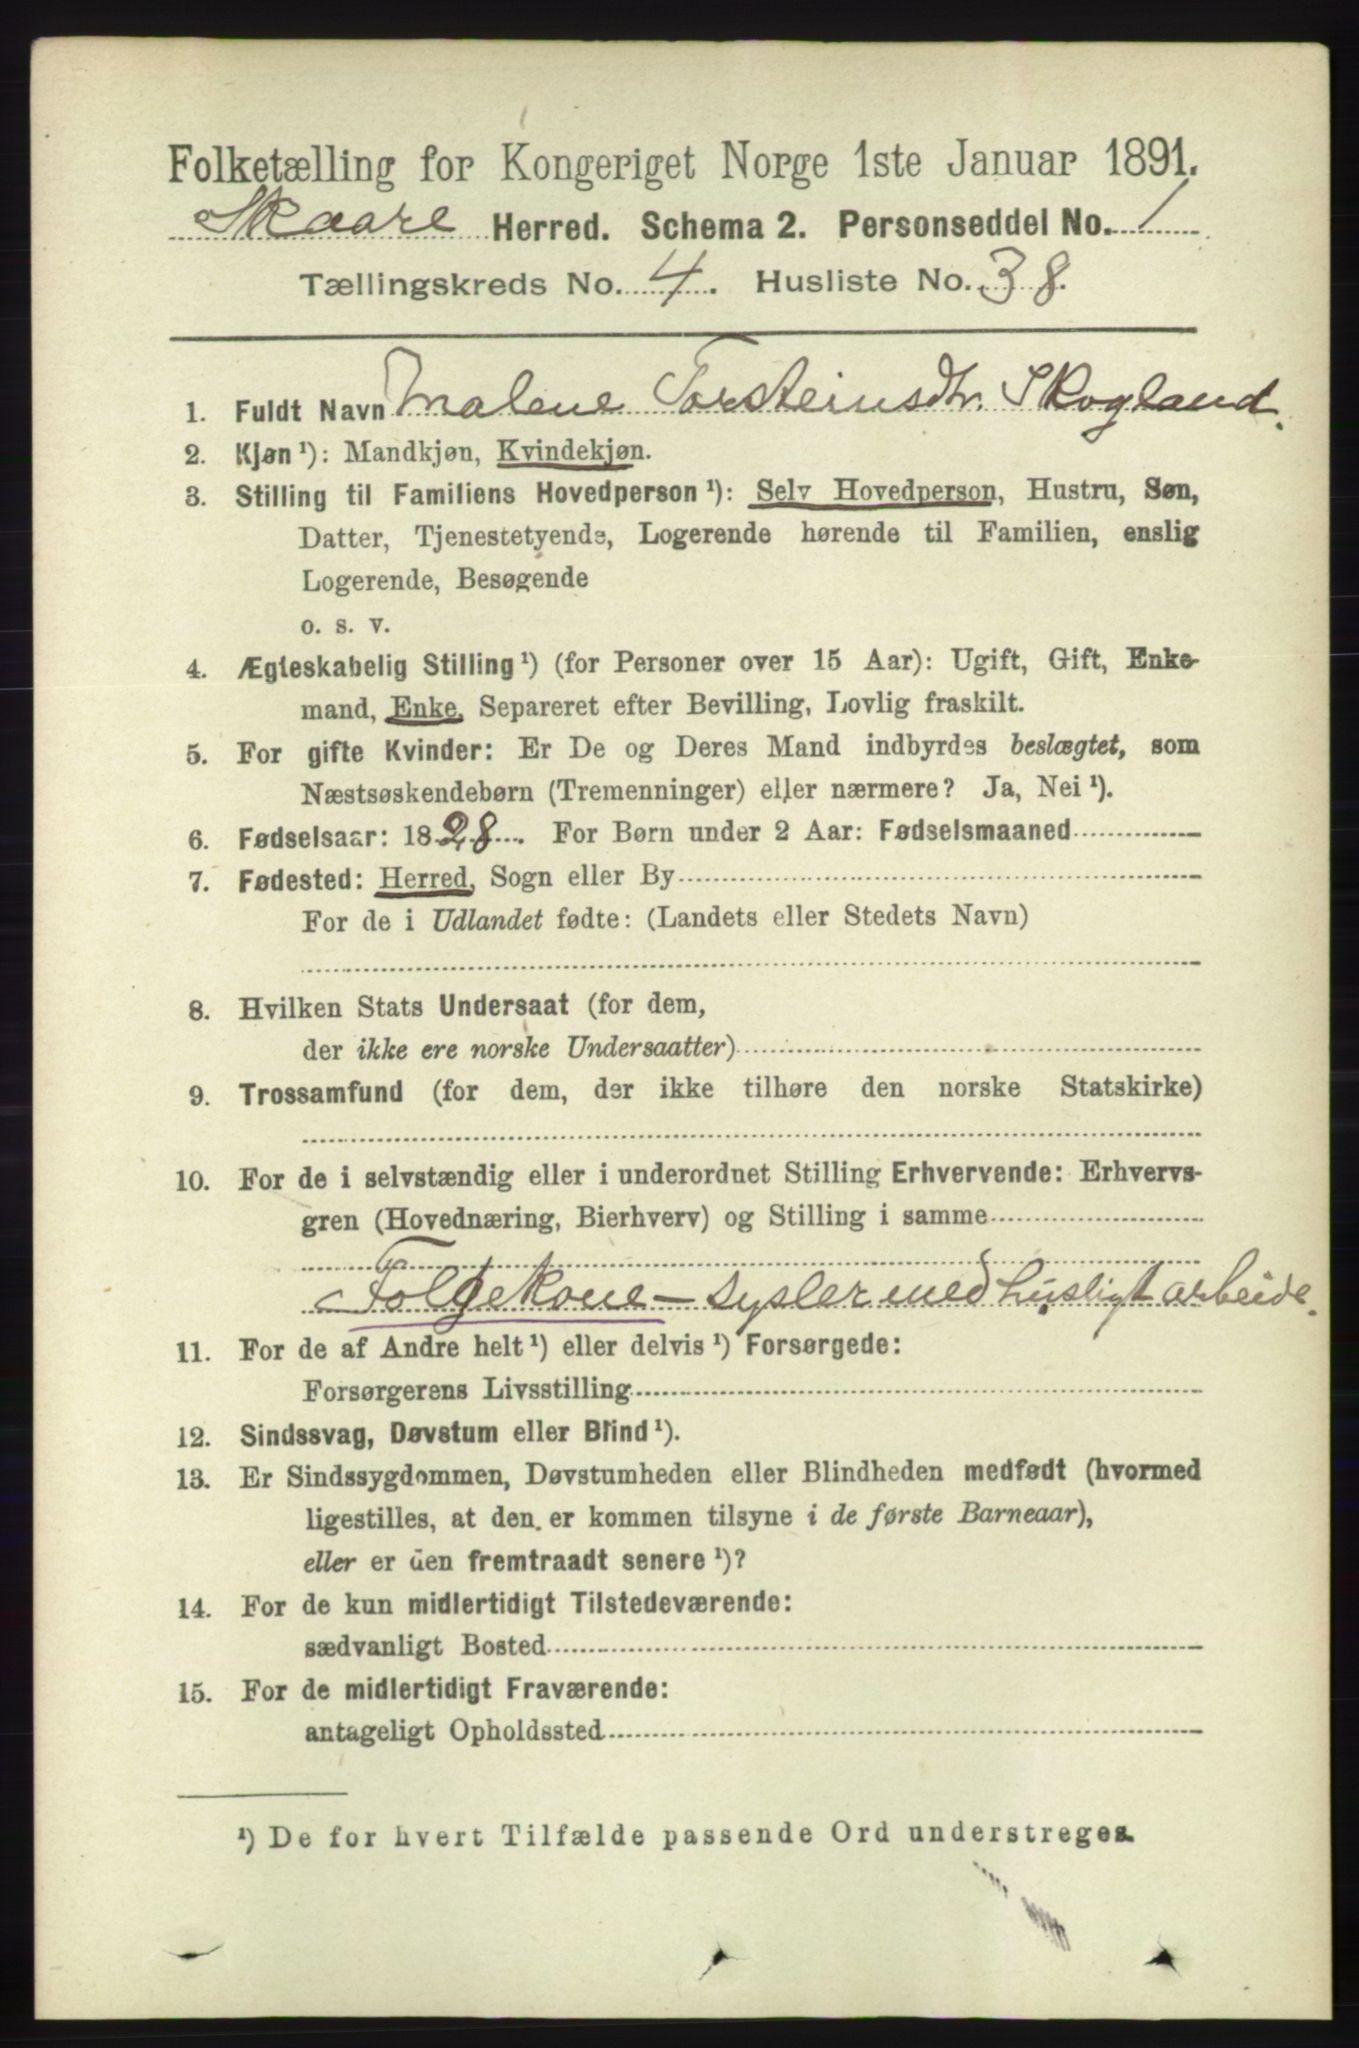 Folketælling for Kongeriget Norge 1ste Januar 1891.
Skaare Herred. Schema 2. Personseddel No. 1
Tællingskreds No. 4. Husliste No. 38.
1. Fuldt Navn Malene Torsteinsdtr. Skogland.
2. Kjøn ¹): Mandkjøn, Kvindekjøn.
3. Stilling til Familiens Hovedperson ¹): Selv Hovedperson, Hustru, Søn,
Datter, Tjenestetyende, Logerende hørende til Familien, enslig
Logerende, Besøgende
o. s. v.
4. Ægteskabelig Stilling ¹) (for Personer over 15 Aar): Ugift, Gift, Enke-
mand, Enke, Separeret efter Bevilling, Lovlig fraskilt.
5. For gifte Kvinder: Er De og Deres Mand indbyrdes beslægtet, som
Næstsøskendebørn (Tremenninger) eller nærmere? Ja, Nei ¹).
6. Fødselsaar: 1828. For Børn under 2 Aar: Fødselsmaaned
7. Fødested: Herred, Sogn eller By
For de i Udlandet fødte: (Landets eller Stedets Navn)
8. Hvilken Stats Undersaat (for dem,
der ikke ere norske Undersaatter)
9. Trossamfund (for dem, der ikke tilhøre den norske Statskirke)
10. For de i selvstændig eller i underordnet Stilling Erhvervende: Erhvervs-
gren (Hovednæring, Bierhverv) og Stilling i samme
Folgekone - sysler med husligt arbeide.
11. For de af Andre helt ¹) eller delvis ¹) Forsørgede:
Forsørgerens Livsstilling
12. Sindssvag, Døvstum eller Blind ¹).
13. Er Sindssygdommen, Døvstumheden eller Blindheden medfødt (hvormed
ligestilles, at den er kommen tilsyne i de første Barneaar),
eller er den fremtraadt senere ¹)?
14. For de kun midlertidigt Tilstedeværende:
sædvanligt Bosted
15. For de midlertidigt Fraværende:
antageligt Opholdssted
¹) De for hvert Tilfælde passende Ord understreges.